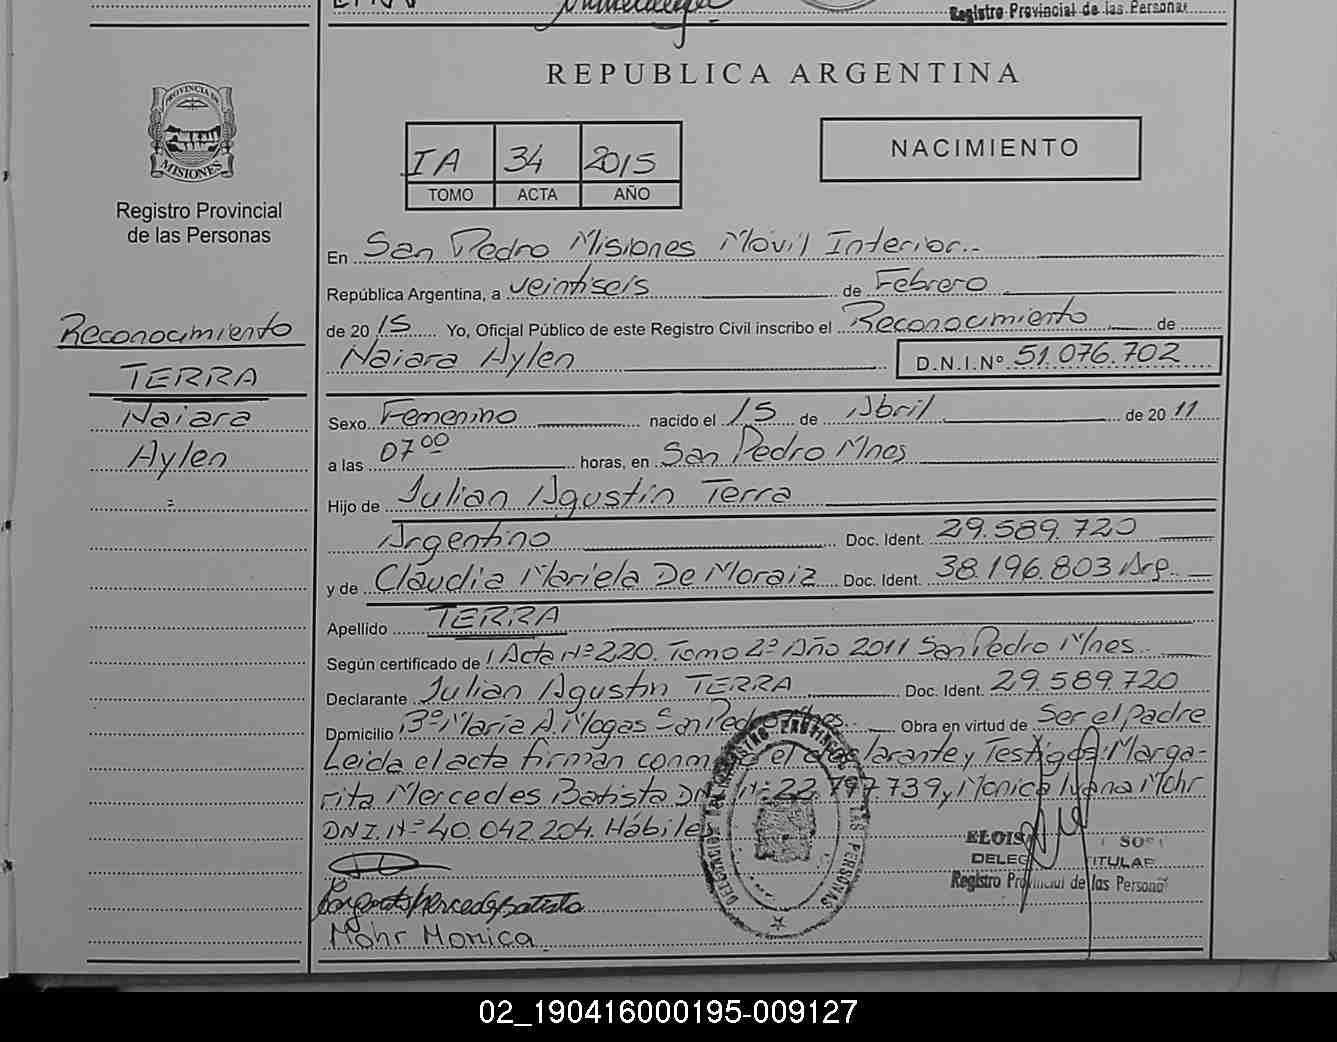 Registro Provincial de las Personas
REPUBLICA ARGENTINA
PROVINCIA DE
MISIONES
Registro Provincial
de las Personas
IA 34 2015
TOMO ACTA AÑO
NACIMIENTO
En San Pedro Misiones Móvil Interior..
República Argentina, a veintiseis de Febrero
de 2015 Yo, Oficial Público de este Registro Civil inscribo el Reconocimiento de
Naiara Aylen D.N.I.Nº 51.076.702
Reconocimiento
TERRA
Naiara
Aylen
Sexo Femenino nacido el 15 de Abril de 2011
a las 07 00 horas, en San Pedro Mnes
Hijo de Julian Agustin Terra
Argentino Doc. Ident. 29.589.720
y de Claudia Mariela De Moraiz Doc. Ident. 38.196.803 Arg.
Apellido TERRA
Según certificado de Acta Nº 220. Tomo 2º Año 2011 San Pedro Mnes
Declarante Julian Agustin TERRA Doc. Ident. 29.589.720
Domicilio Bº Maria A. Mogas San Pedro Mnes. Obra en virtud de Ser el padre
Leida el acta firman el declarante y Testigos: Marga-
rita Mercedes Batista DNI Nº 22. 797739, y Monica Ivana Mohr
DNI. Nº 40.042.204. Hábiles
DELEGACION REGISTRO PROVINCIAL DE LAS PERSONAS
ELOIS
TITULAR
Registro Provincial de las Personas
Mohr Monica
02_190416000195-009127